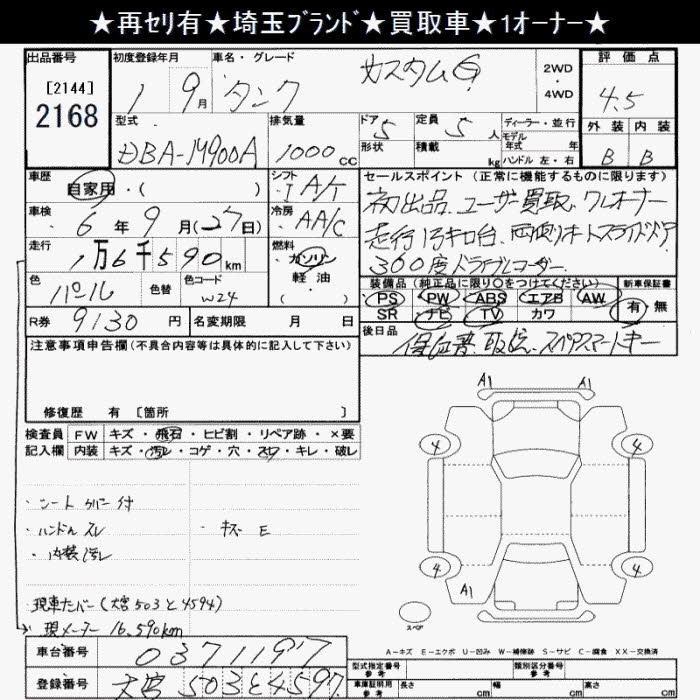 ★再セリ有★埼玉ブランド★買取車★1オーナー★
出品番号
[2144]
2168
初度登録年月
1 9月
車名・グレード
タンク カスタムG
2WD
・
4WD
評価点
4.5
外装 内装
B B
型式
DBA-M900A
排気量
1000cc
ドア 5
形状
定員 5人
積載 kg
ディーラー・並行
モデル
年式 年
ハンドル 左・右
車歴
自家用・( )
シフト
IA/T
車検
6年9月(27日)
冷房
AA/C
走行
1万6千590km
燃料
ガソリン
・
軽油
( )
色
パール
色替
色コード
W24
R券 9130円
名変期限 月 日
セールスポイント (正常に機能するものに限ります)
初出品、ユーザー買取、ワンオーナー
走行1万キロ台、両側オートスライドドア
360度ドライブレコーダー
装備品(純正品に限り○をつけてください)
PS PW ABS エアB AW
SR ナビ TV カワ
新車保証書
有・無
後日品
保証書、取説、スペアスマートキー
注意事項申告欄(不具合内容等は具体的に記入して下さい)
修復歴 有 [箇所 ]
検査員 FW キズ・飛石・ヒビ割・リペア跡・×要
記入欄 内装 キズ・汚レ・コゲ・穴・スレ・キレ・破レ
・シートカバー付
・ハンドルスレ ・キズE
・内装汚レ
・現車ナンバー(大宮503と4594)
現メーター 16,590km
A1 A1
4 4
4 4
A1
スペア
A-キズ E-エクボ U-凹み W-補修跡 S-サビ C-腐食 XX-交換済
車台番号 0371197
登録番号 大宮503と4597
型式指定番号
参考
類別区分番号
参考
車庫証明用
参考
長さ cm
幅 cm
高さ cm